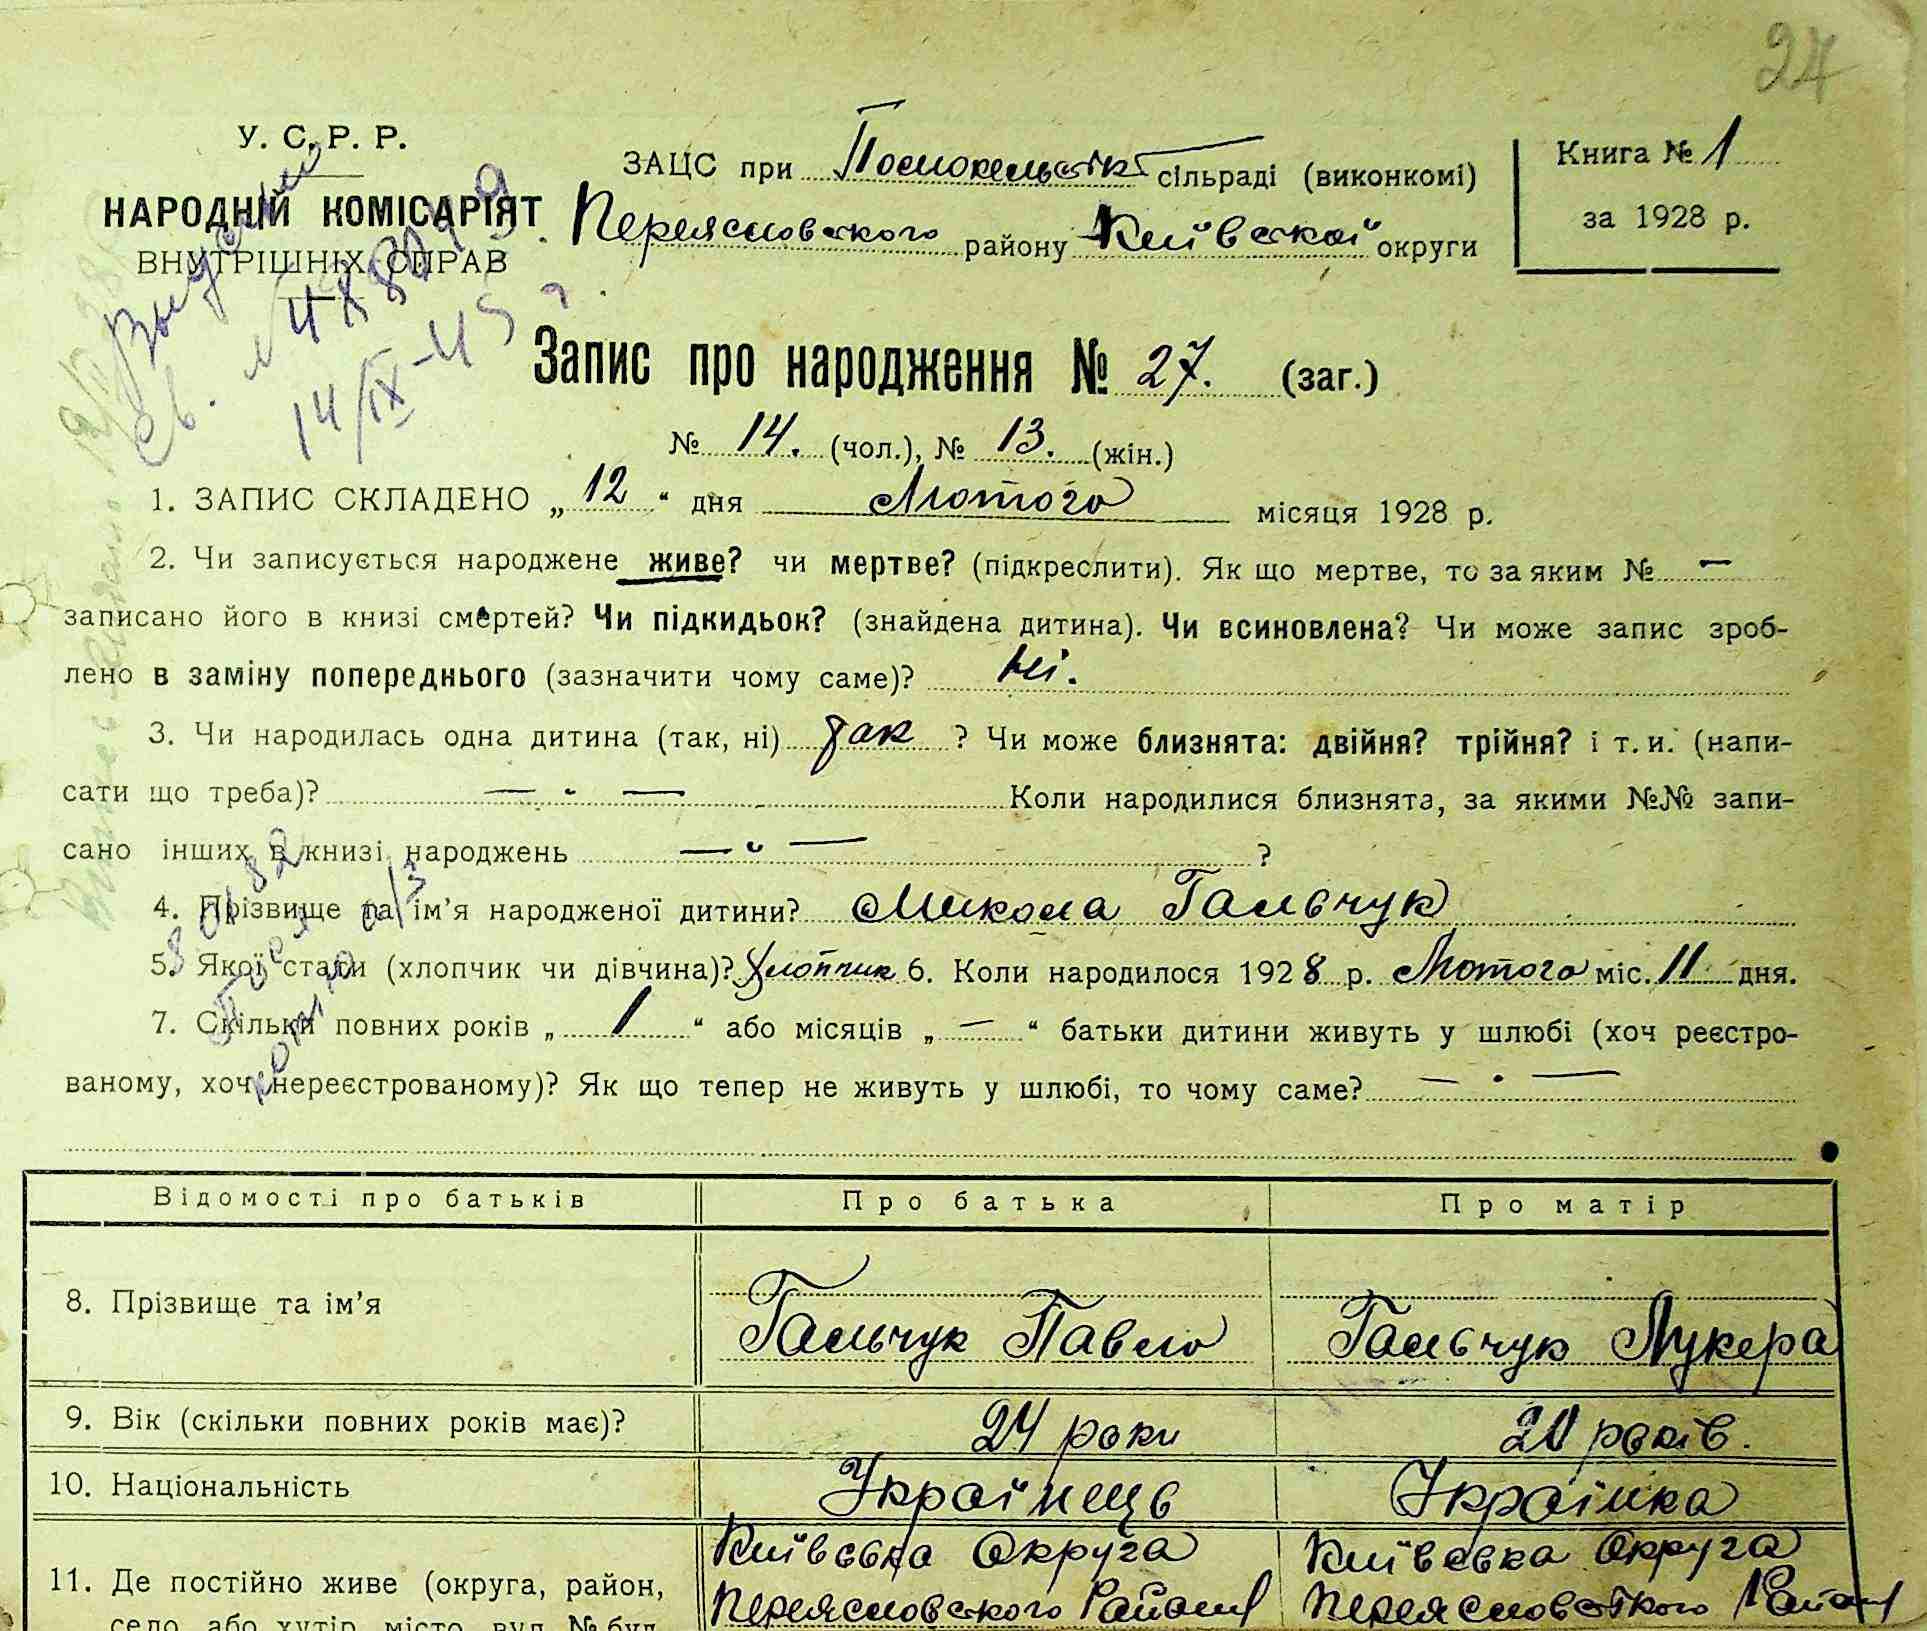 24
У. С. Р. Р.
НАРОДНІЙ КОМІСАРІЯТ
ВНУТРІШНІХ СПРАВ
ЗАЦС при сільраді (виконкомі)
Переясловского району Київскої округи
Книга № 1
за 1928 р.
14/IX-45 г.
Запис про народження № 27. (заг.)
№ 14. (чол.), № 13. (жін.)
1. ЗАПИС СКЛАДЕНО „ 12 “ дня Лютого місяця 1928 р.
2. Чи записується народжене живе? чи мертве? (підкреслити). Як що мертве, то за яким № —
записано його в книзі смертей? Чи підкидьок? (знайдена дитина). Чи всиновлена? Чи може запис зроб-
лено в заміну попереднього (зазначити чому саме)? Ні.
3. Чи народилась одна дитина (так, ні) Так ? Чи може близнята: двійня? трійня? і т. и. (напи-
сати що треба)? — " — Коли народилися близнята, за якими №№ запи-
сано інших в книзі народжень — " — ?
4. Прізвище та ім’я народженої дитини? Микола Гальчук
5. Якої стати (хлопчик чи дівчина)? Хлопчик 6. Коли народилося 1928 р. Лютого міс. 11 дня.
7. Скільки повних років „ 1 “ або місяців „ — “ батьки дитини живуть у шлюбі (хоч реєстро-
ваному, хоч нереєстрованому)? Як що тепер не живуть у шлюбі, то чому саме? — " —
Відомості про батьків Про батька Про матір
8. Прізвище та ім’я Гальчук Павло Гальчук Лукера
9. Вік (скільки повних років має)? 24 роки 20 років.
10. Національність Українець Українка
Київська Округа Київська Округа
11. Де постійно живе (округа, район, Переясловского Району Переясловського Району
село або хутір, місто, вул. № буд.